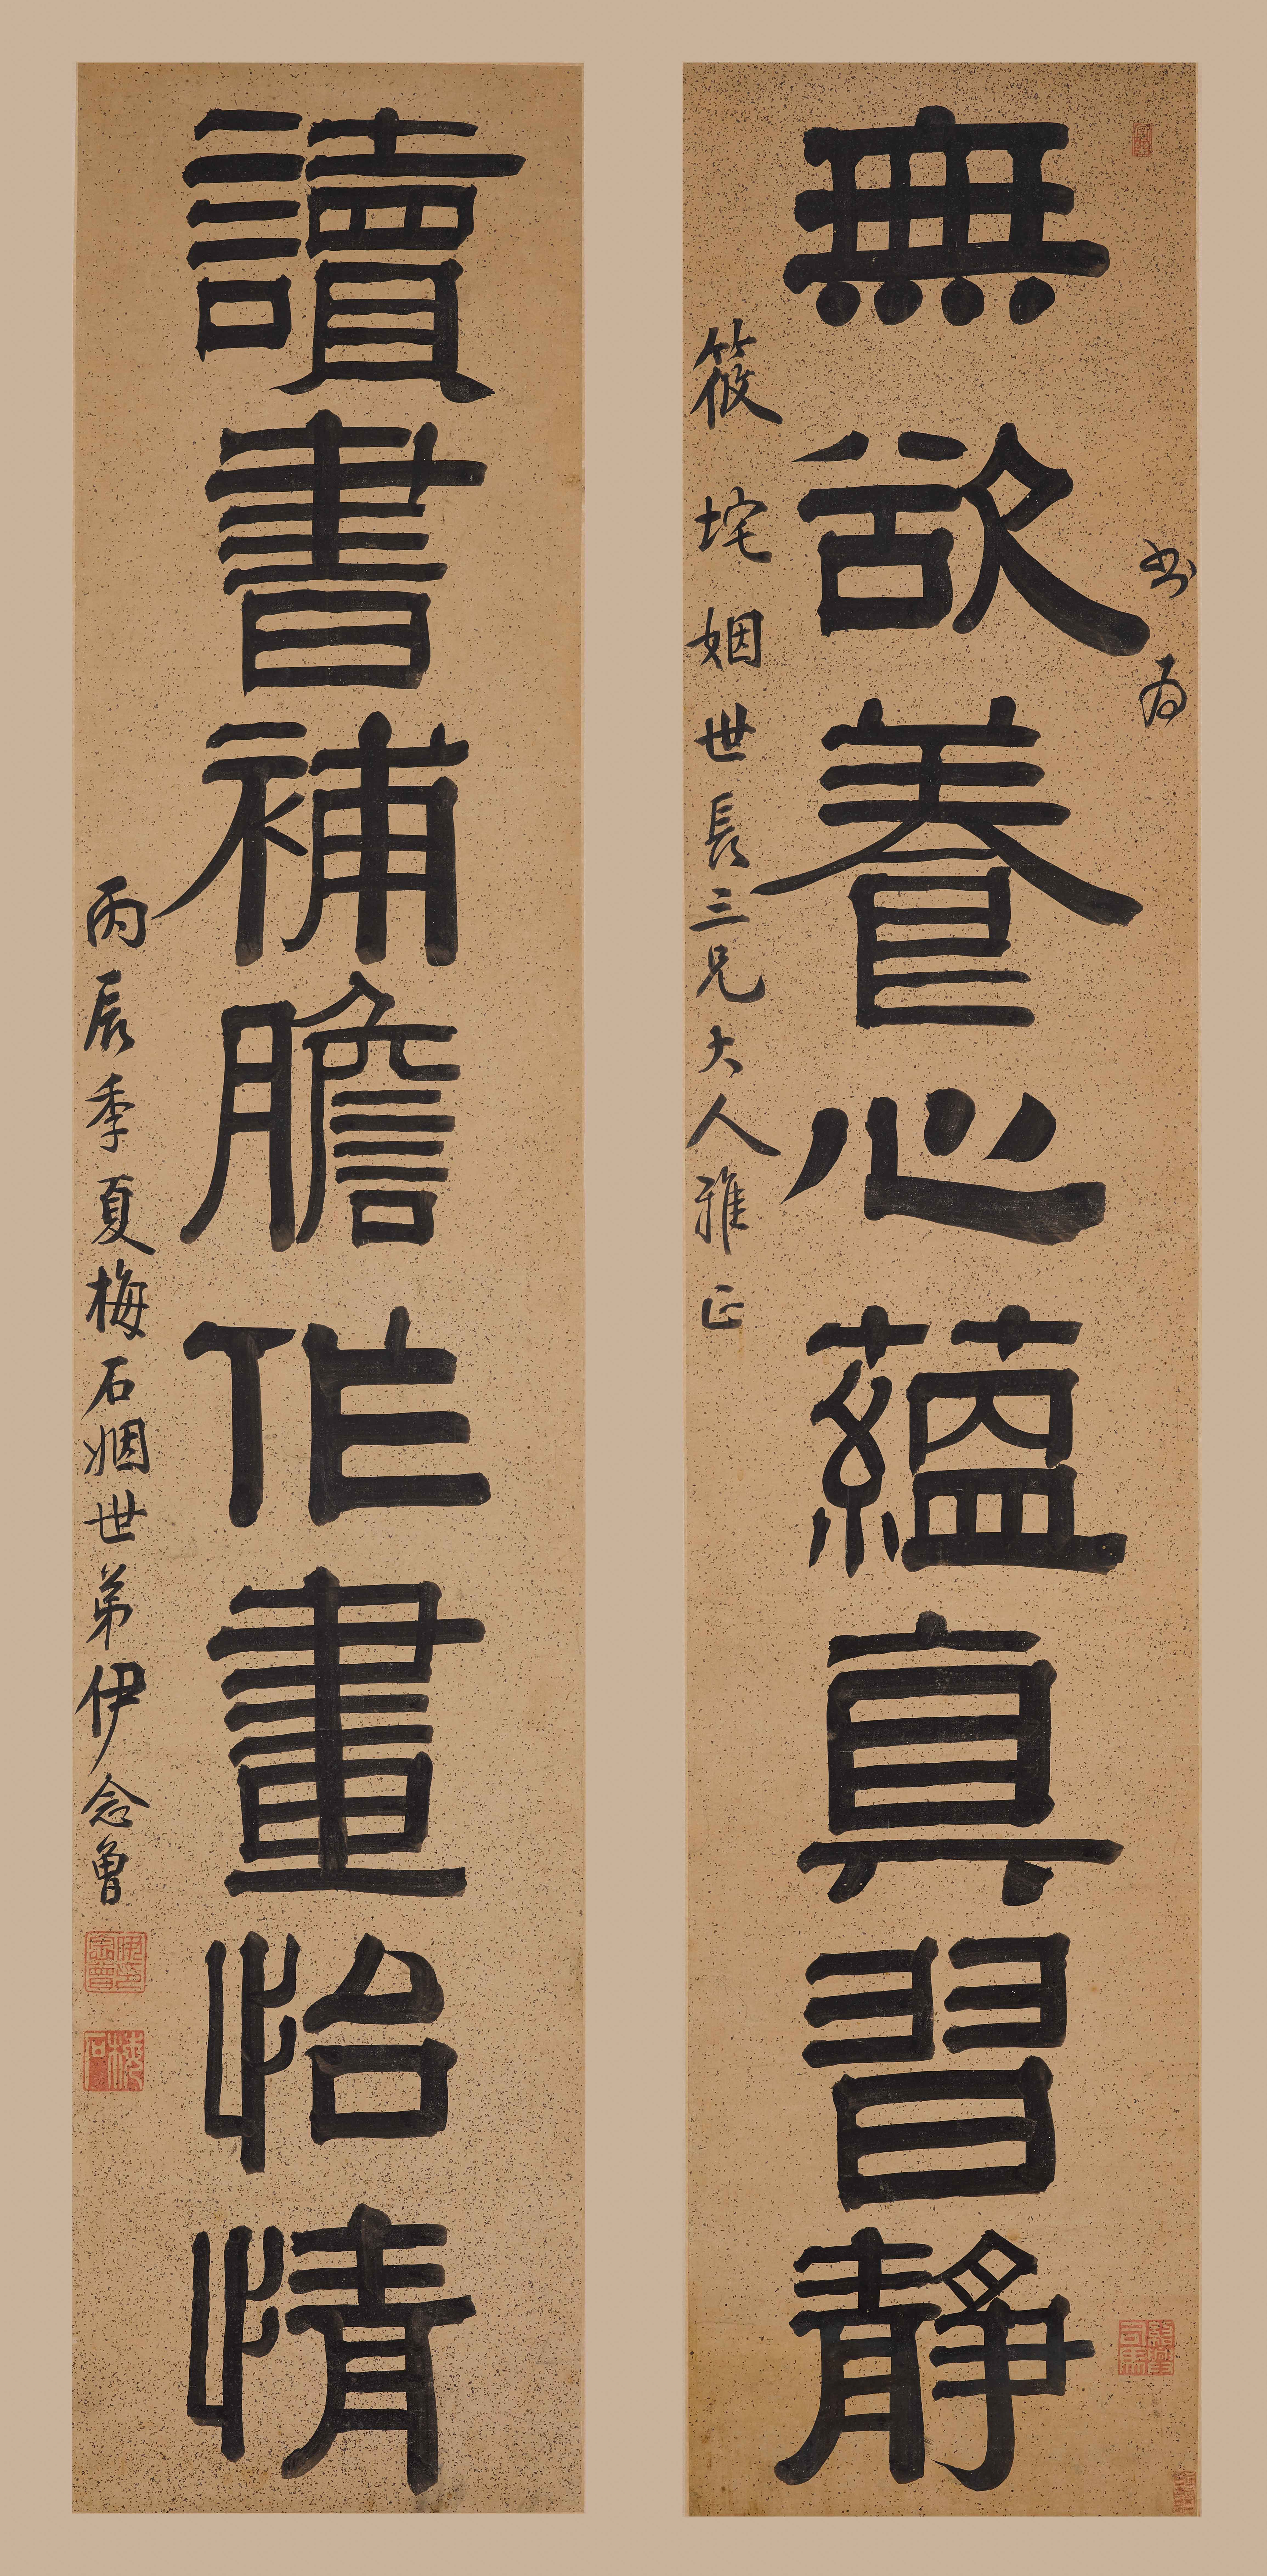 書為
無欲養心蘊真習靜
筱垞姻世長三兄大人雅正
讀書補膽作畫怡情
丙辰季夏梅石姻世弟伊念曾
伊印念曾
梅石